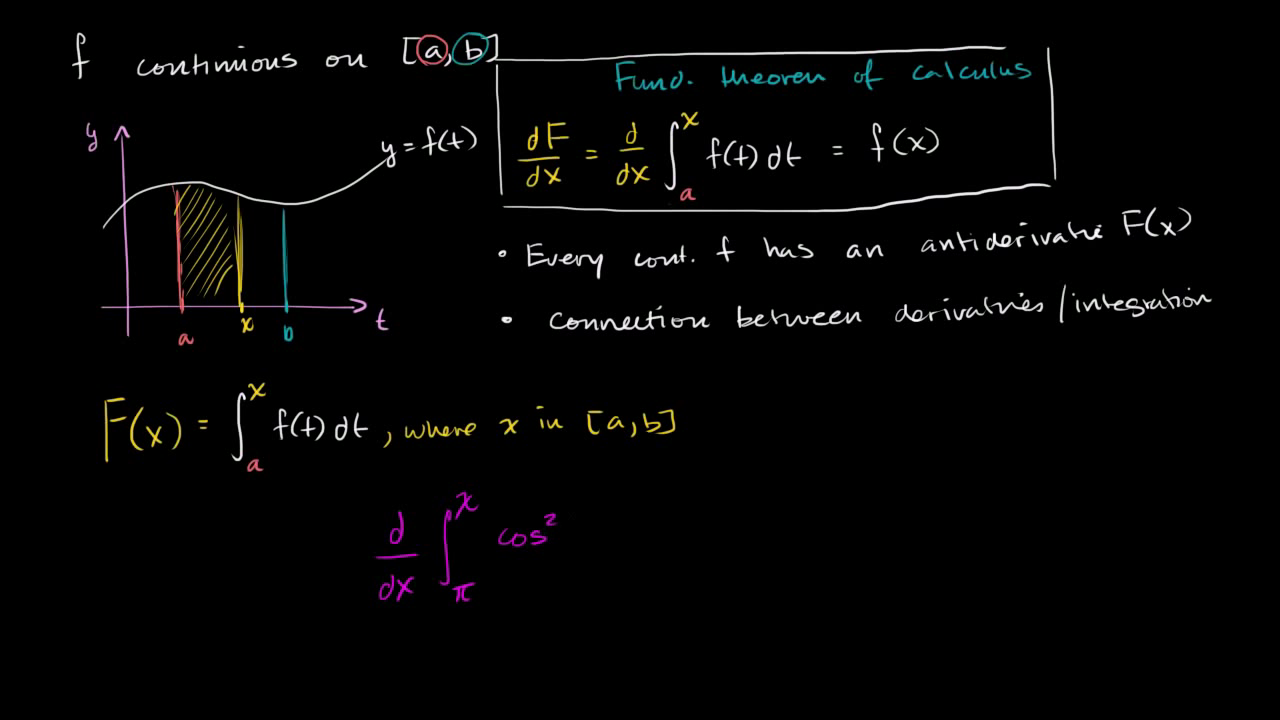 f continuous on [a, b]
Fund. theorem of calculus
dF/dx = d/dx ∫_a^x f(t) dt = f(x)
y
y = f(t)
a x b t
• Every cont. f has an antiderivative F(x)
• connection between derivatives/integration
F(x) = ∫_a^x f(t) dt, where x in [a,b]
d/dx ∫_π^x cos²